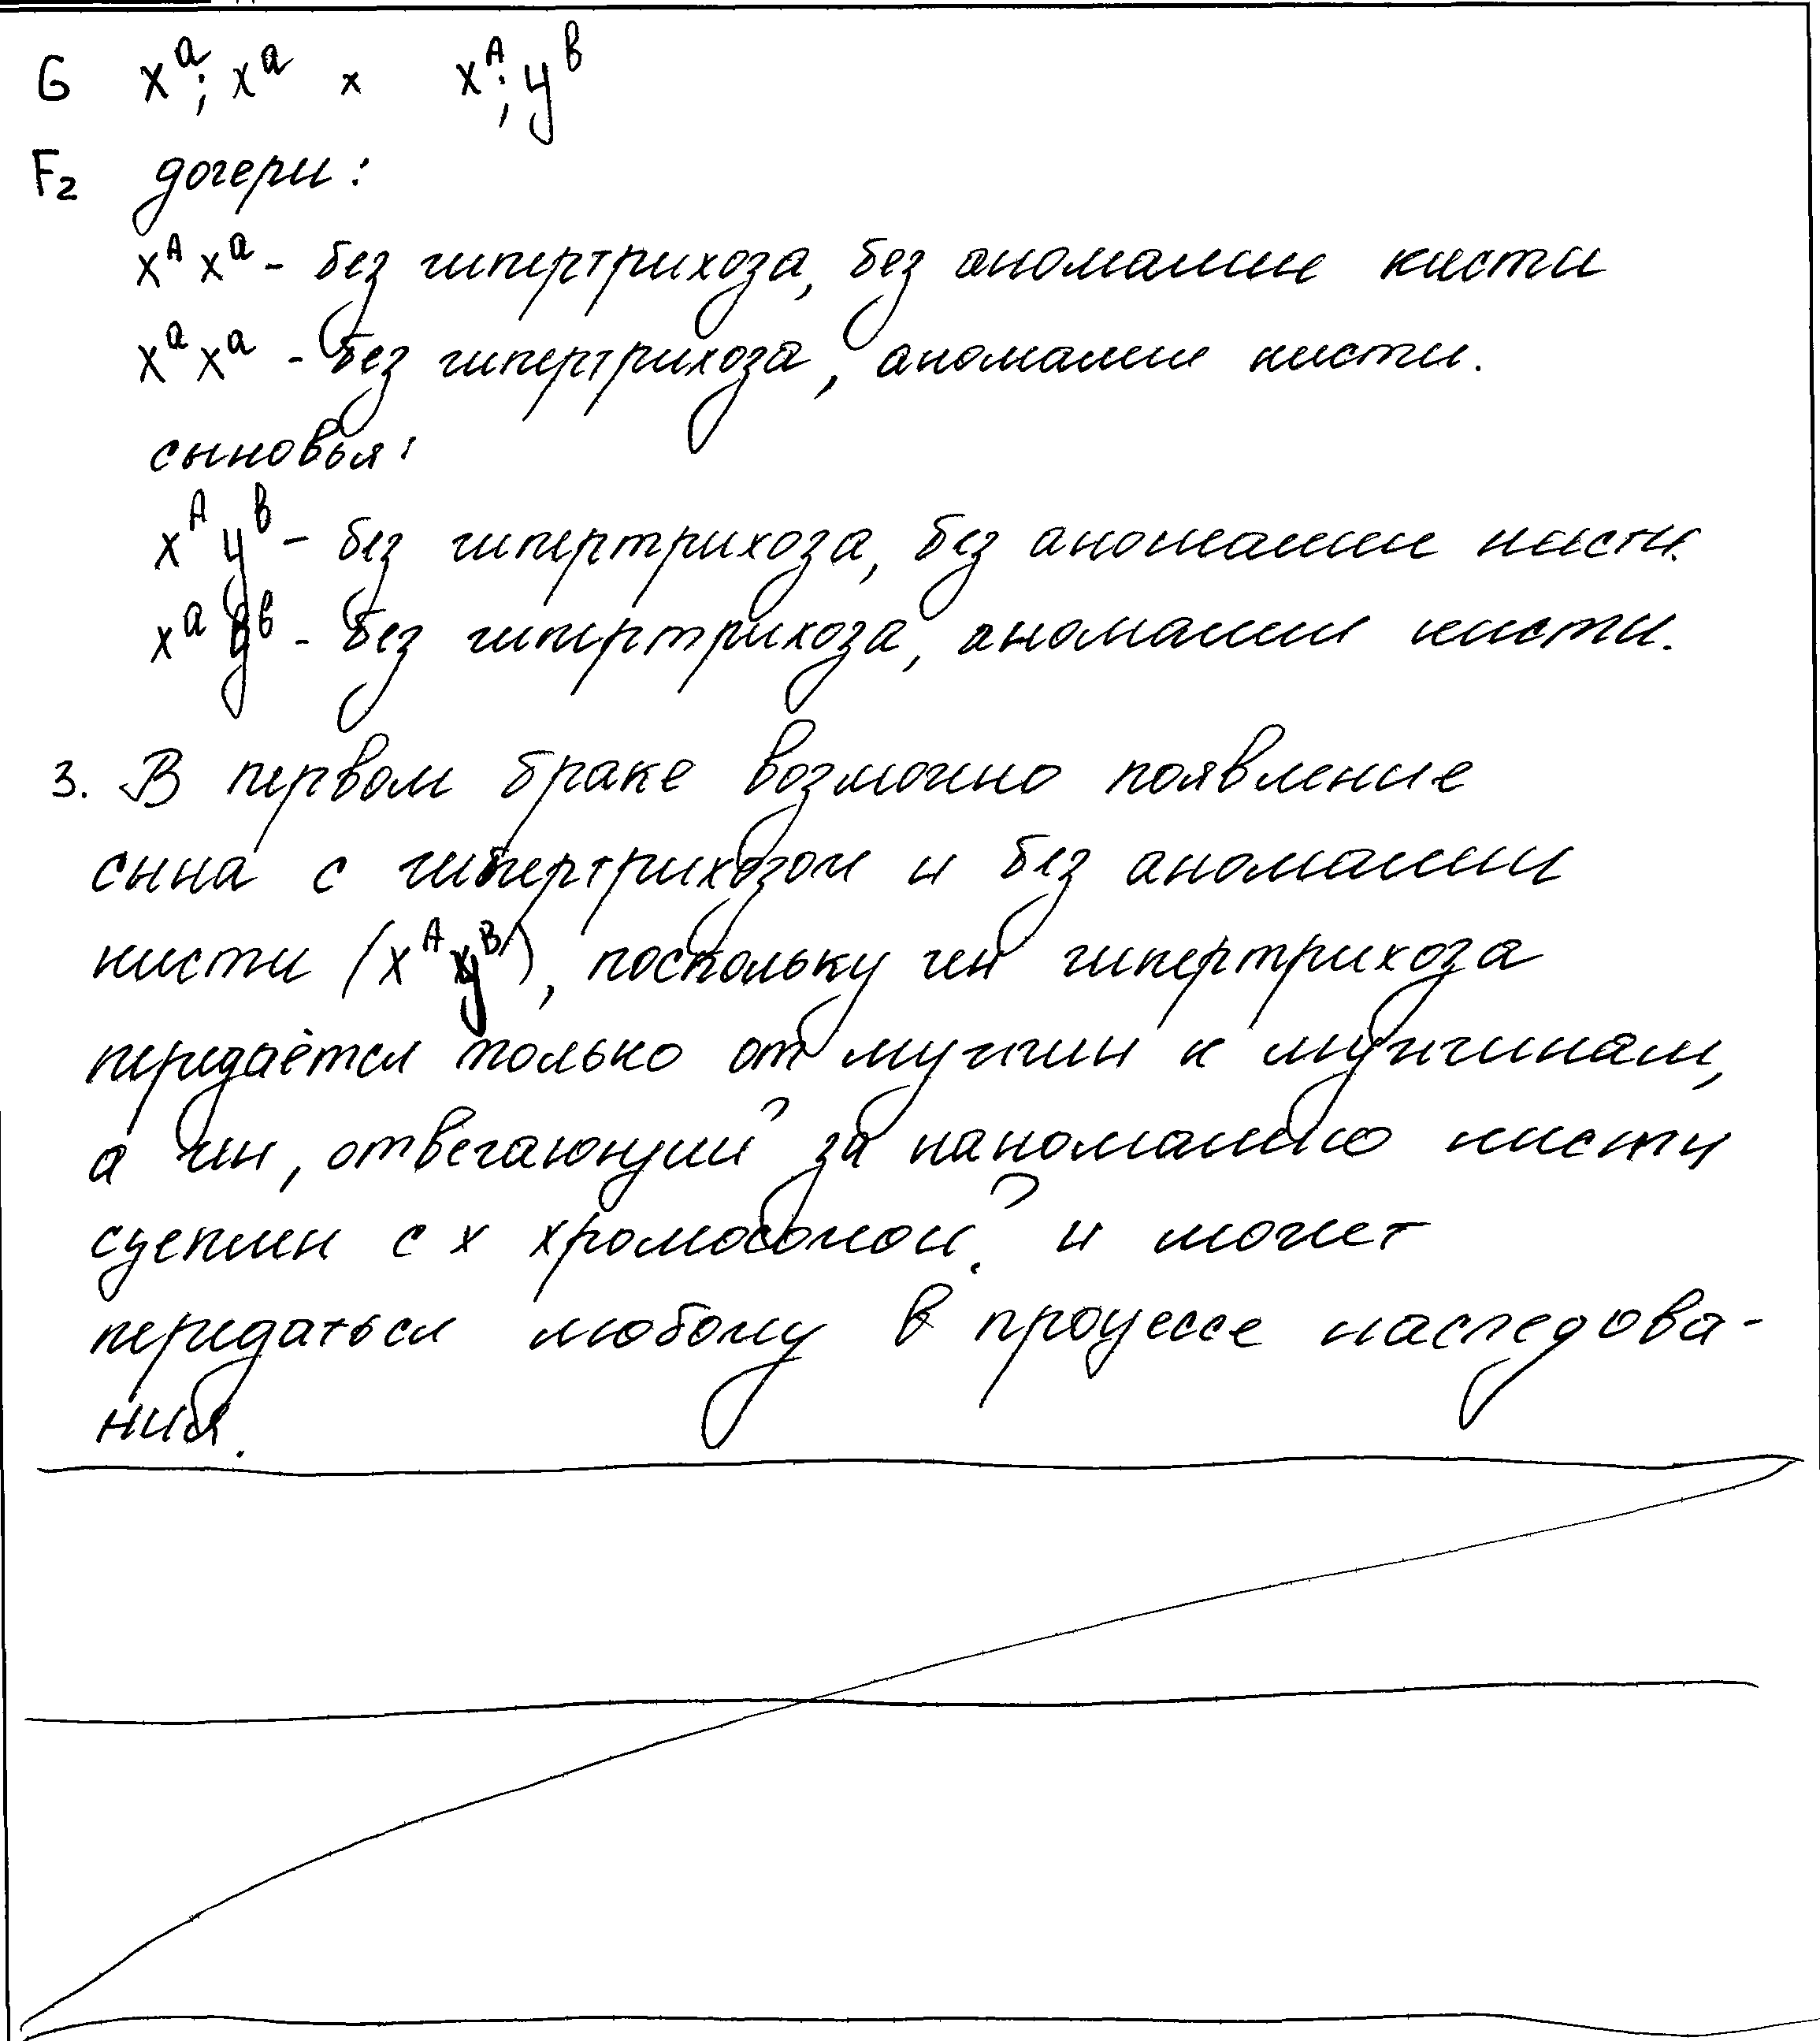 G x^a; x^a × x^A; y^b
F₂ дочери:
x^A x^a - без гипертрихоза, без аномалии кисти
x^a x^a - без гипертрихоза, аномалии кисти.
сыновья:
x^A y^b - без гипертрихоза, без аномалии кисти.
x^a y^b - без гипертрихоза, аномалии кисти.
3. В первом браке возможно появление
сына с гипертрихозом и без аномалии
кисти (x^A y^B), поскольку ген гипертрихоза
передаётся только от мужчин к мужчинам,
а ген, отвечающий за наномалию кисти
сцеплен с х хромосомой. и может
передаться любому в процессе наследова-
ния.